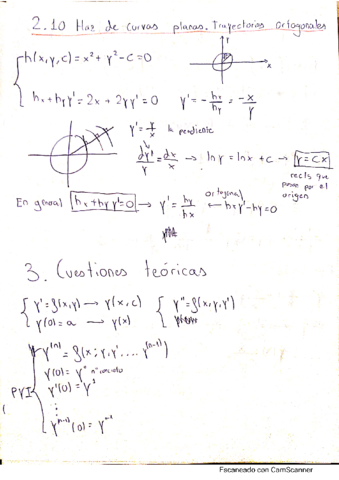 2.10 Haz de curvas planas. Trayectorias ortogonales
h(x,y,c) = x² + y² - c = 0
Y
x
hx + hy y' = 2x + 2yy' = 0 y' = - hx/hy = -x/y
y' = y/x la pendiente
dy/y = dx/x → ln y = ln x + c → y = cx
recta que
pasan por el
origen
En general hx + hy y' = 0 → y' = hy/hx ortogonal ← hx y' - hy = 0
3. Cuestiones teóricas
y' = f(x,y) → y(x,c) y'' = f(x,y,y')
y(0) = a → y(x)
y^(n) = f(x; y, y' .... y^(n-1))
y(0) = y⁰ n° conocido
PVI y'(0) = y¹
⋮
y^(n-1)(0) = y^(n-1)
Escaneado con CamScanner